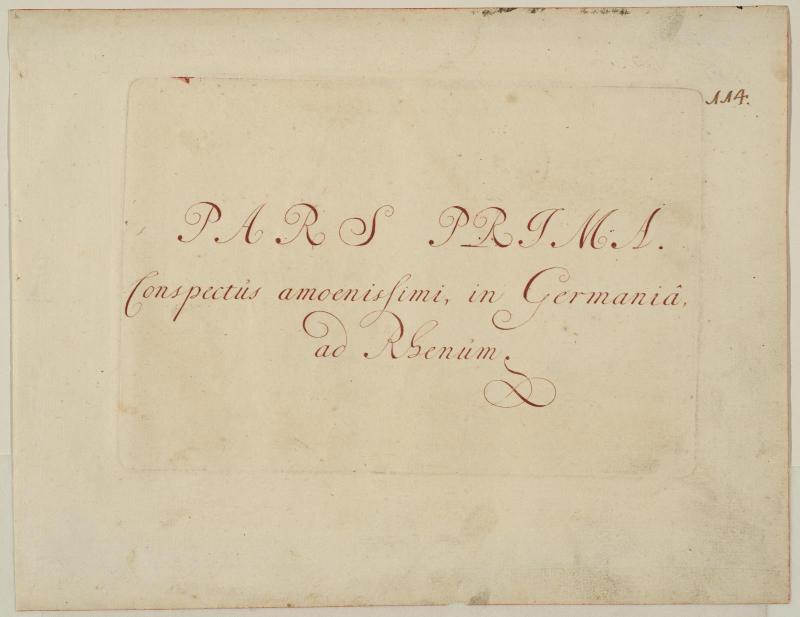 114.
PARS PRIMA.
Conspectús amoenisſimi, in Germaniâ,
ad Rhenúm.